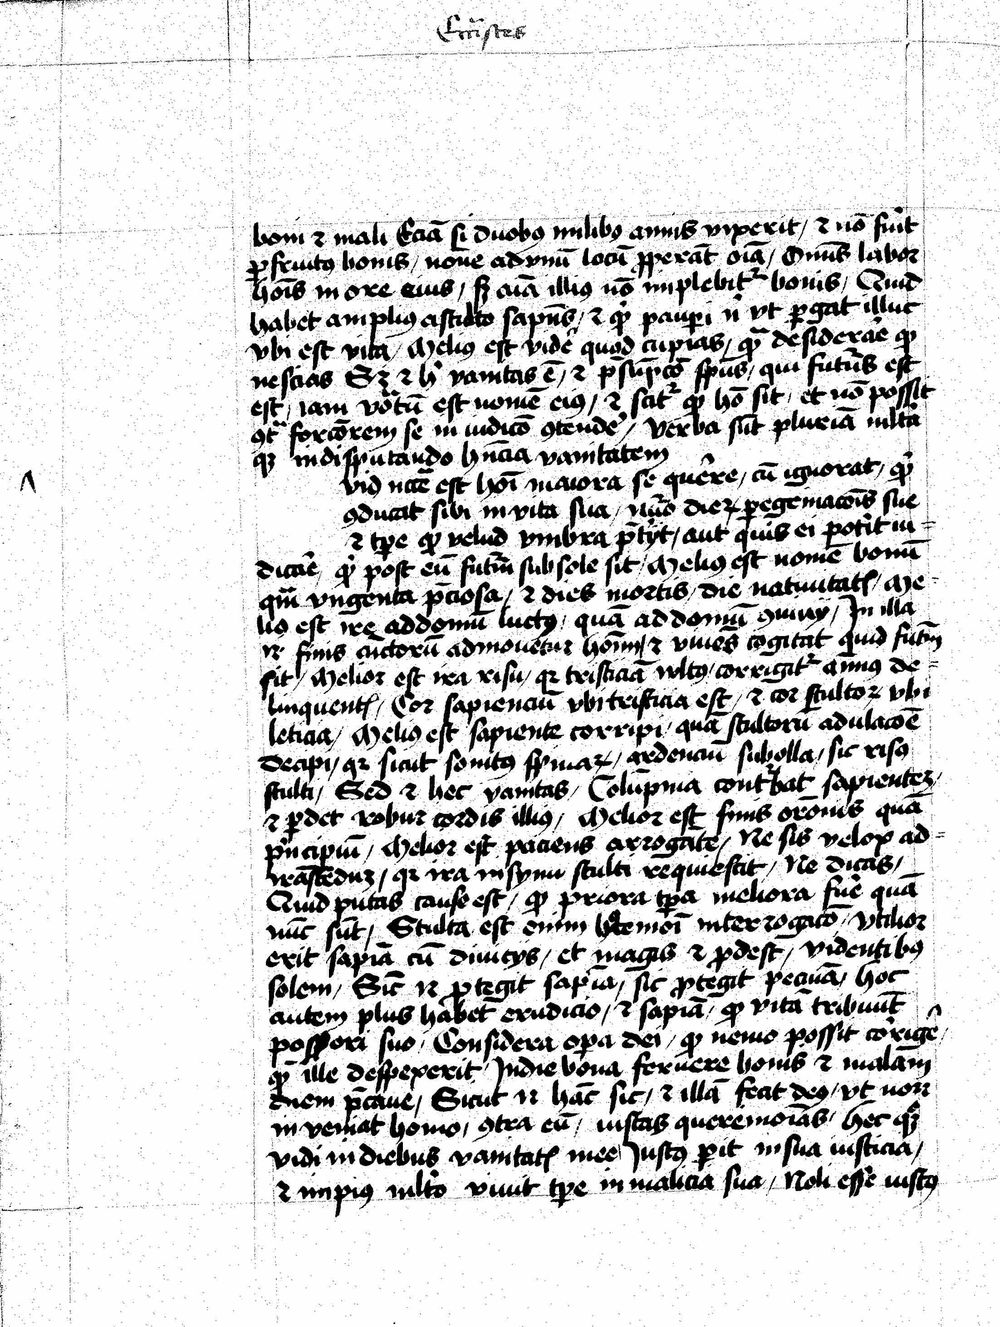 Eccl̃istes
boni ⁊ mali Eciã si duobꝯ milibꝯ annis vixerit / ⁊ nõ fũit
ꝑfruitꝯ bonis / nõne ad vnũ locũ ꝓperãt oĩa / Omĩs labor
hoĩs in ore eius / sꝫ aĩa illiꝯ nõ implebitᷣ bonis / Quid
habet ampliꝯ a stulto sapiẽs / ⁊ qͥd pauꝑi nͥ vt ꝑgat illuc
vbi est vita / Meliꝯ est vidẽ quod cupias / qᷓ desiderar̃e qͩ
nescias Sꝫ ⁊ hͦ vanitas ẽ / ⁊ p̃sũpcõ sp̃us / qui futur̃s est
est / iam vocatũ est nomẽ eiꝯ / ⁊ scitᷣ qͩ hõ sit / et nõ possit
ꝯtᷓ forciorem se in iudicõ ꝯtendẽ / Verba sũt plurĩa mĩlta
qꝫ in disputando hñcia vanitatem
vid ncc̃e est hoĩ maiora se quẽrere / cũ ignorat / qͥd
ꝯducat sibi in vita sua / nũo dieꝝ ꝑegrinacõis sue
⁊ tꝑe qͩ velud vmbra p̃tẽyt / aut quĩs ei poterit in=
dicar̃e / qͥd post eũ futũm sub sole sit / Meliꝯ est nomẽ bonũ
qᷓm vngenta p̃ciosa / ⁊ dies mortis / die natiuitatꝭ / Me=
liꝯ est ire ad domũ luctꝯ / quã ad domũ ꝯuiuij / In illa
⁊ finis cũctorũ admonetur hoĩm / ⁊ viuẽs cogitat quid futũm
sit / Melior est ira risu / qꝛ tristiciã vultꝯ / corrigitᷣ aĩmꝯ de=
linquentꝭ / Cor sapienciũ vbi tristicia est / ⁊ cor stultoꝝ vbi
leticia / Meliꝯ est a sapiente corripi / quã stultorũ adulacõe
decipi / qꝛ sicut sonitꝯ spinaꝝ / ardenciũ sub olla / sic risꝯ
stulti / Sed ⁊ hec vanitas / Colũpnia conturbat sapientez /
⁊ ꝑdet robur cordis illiꝯ / Melior est finis orõnis quã
pͥncipiũ / Melior est paciens arrogãte / Ne sis velox ad=
irascendũ / qꝛ ira in synu stulti requiescit / Ne dicas /
Quid putas cause est / qͩ priora tꝑa meliora fũe quã
nũc sũt / Stulta est enim hꝯcemõi interrogacõ / Vtilior
erit sapĩa cũ diuicijs / et magis ⁊ ꝓdest / videntibꝯ
solem / Sic̃ ⁊ ꝓtegit sapĩa / sic ꝓtegit pecuĩa / hoc
autem plus habet erudicio / ⁊ sapĩa / qͩ vitã tribuũt
possori suo / Considera oꝑa dei / qͩ nemo possit corigẽ /
qͩ ille despexerit / In die bona feruere bonis ⁊ malam
diem p̃caue / Sicut ⁊ hãc sic / ⁊ illã fecit deꝯ / vt non
inveniat homo / ꝯtra eũ / iustas querimoĩas / hec qͦꝫ
vidi in diebus vanitatꝭ mee Justꝯ ꝑit in sua iusticia /
⁊ impiꝯ mlto viuit tꝑe in malicia sua / Noli esse iustꝯ